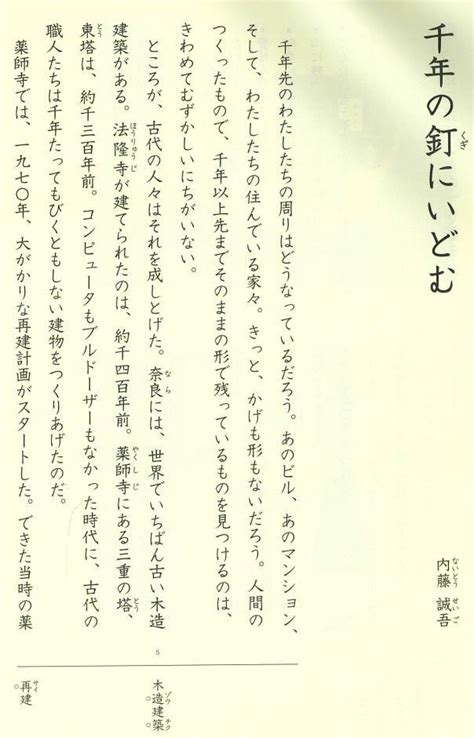 千年の釘にいどむ
内藤 誠吾
千年先のわたしたちの周りはどうなっているだろう。あのビル、あのマンション、
そして、わたしたちの住んでいる家々。きっと、かげも形もないだろう。人間の
つくったもので、千年以上先までそのままの形で残っているものを見つけるのは、
きわめてむずかしいにちがいない。
ところが、古代の人々はそれを成しとげた。奈良には、世界でいちばん古い木造
建築がある。法隆寺が建てられたのは、約千四百年前。薬師寺にある三重の塔、
東塔は、約千三百年前。コンピュータもブルドーザーもなかった時代に、古代の
職人たちは千年たってもびくともしない建物をつくりあげたのだ。
薬師寺では、一九七〇年、大がかりな再建計画がスタートした。できた当時の薬
5
木造建築。
再建。